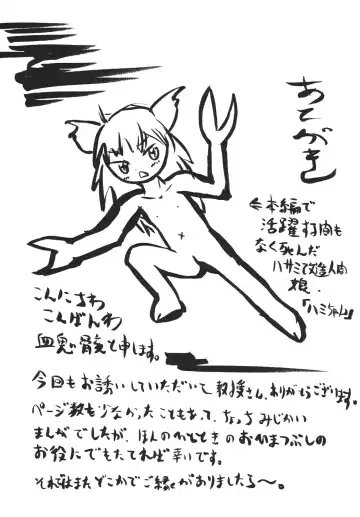 あとがき
⇐本編で
活躍する間も
なく死んだ
ハサミ改造人間
娘.
「ハミ
こんにちわ
こんばんわ
血鬼骸と申します。
今回もお誘いしていただいて教授さん、ありがとうございます。
ページ数も少なかったこともあって、ちょっちみじかい
まんがでしたが、ほんのひとときのおひまつぶしの
お役にでもたてれば幸いです。
それではまたどこかでご縁がありましたら〜。